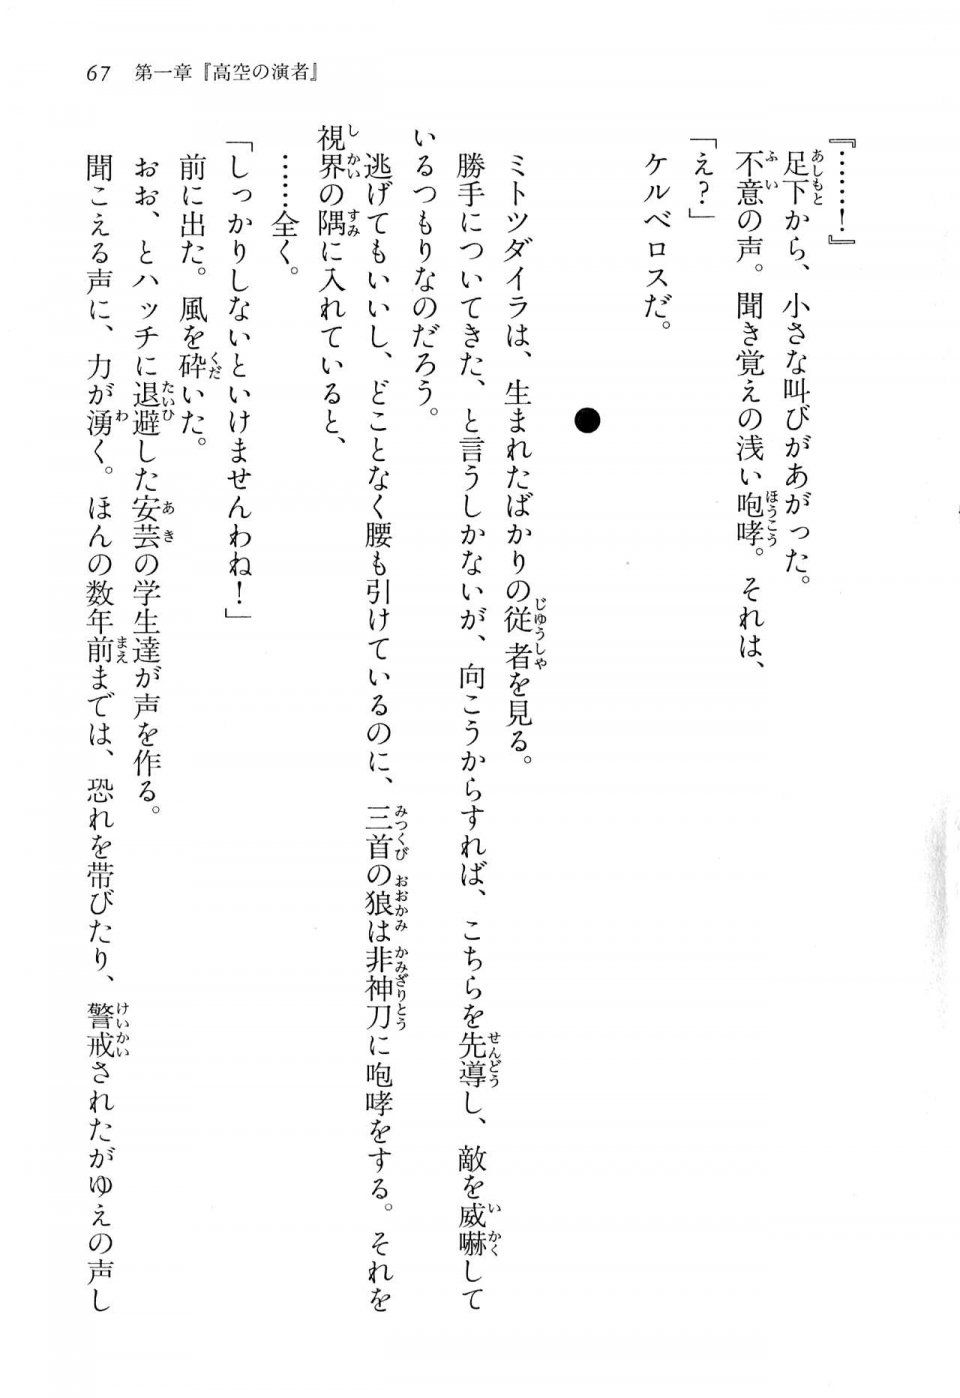 67 第一章『高空の演者』
『……！』
足下から、小さな叫びがあがった。
不意の声。聞き覚えの浅い咆哮。それは、
「え？」
ケルベロスだ。
●
ミトツダイラは、生まれたばかりの従者を見る。
勝手についてきた、と言うしかないが、向こうからすれば、こちらを先導し、敵を威嚇して
いるつもりなのだろう。
逃げてもいいし、どことなく腰も引けているのに、三首の狼は非神刀に咆哮をする。それを
視界の隅に入れていると、
……全く。
「しっかりしないといけませんわね！」
前に出た。風を砕いた。
おお、とハッチに退避した安芸の学生達が声を作る。
聞こえる声に、力が湧く。ほんの数年前までは、恐れを帯びたり、警戒されたがゆえの声し